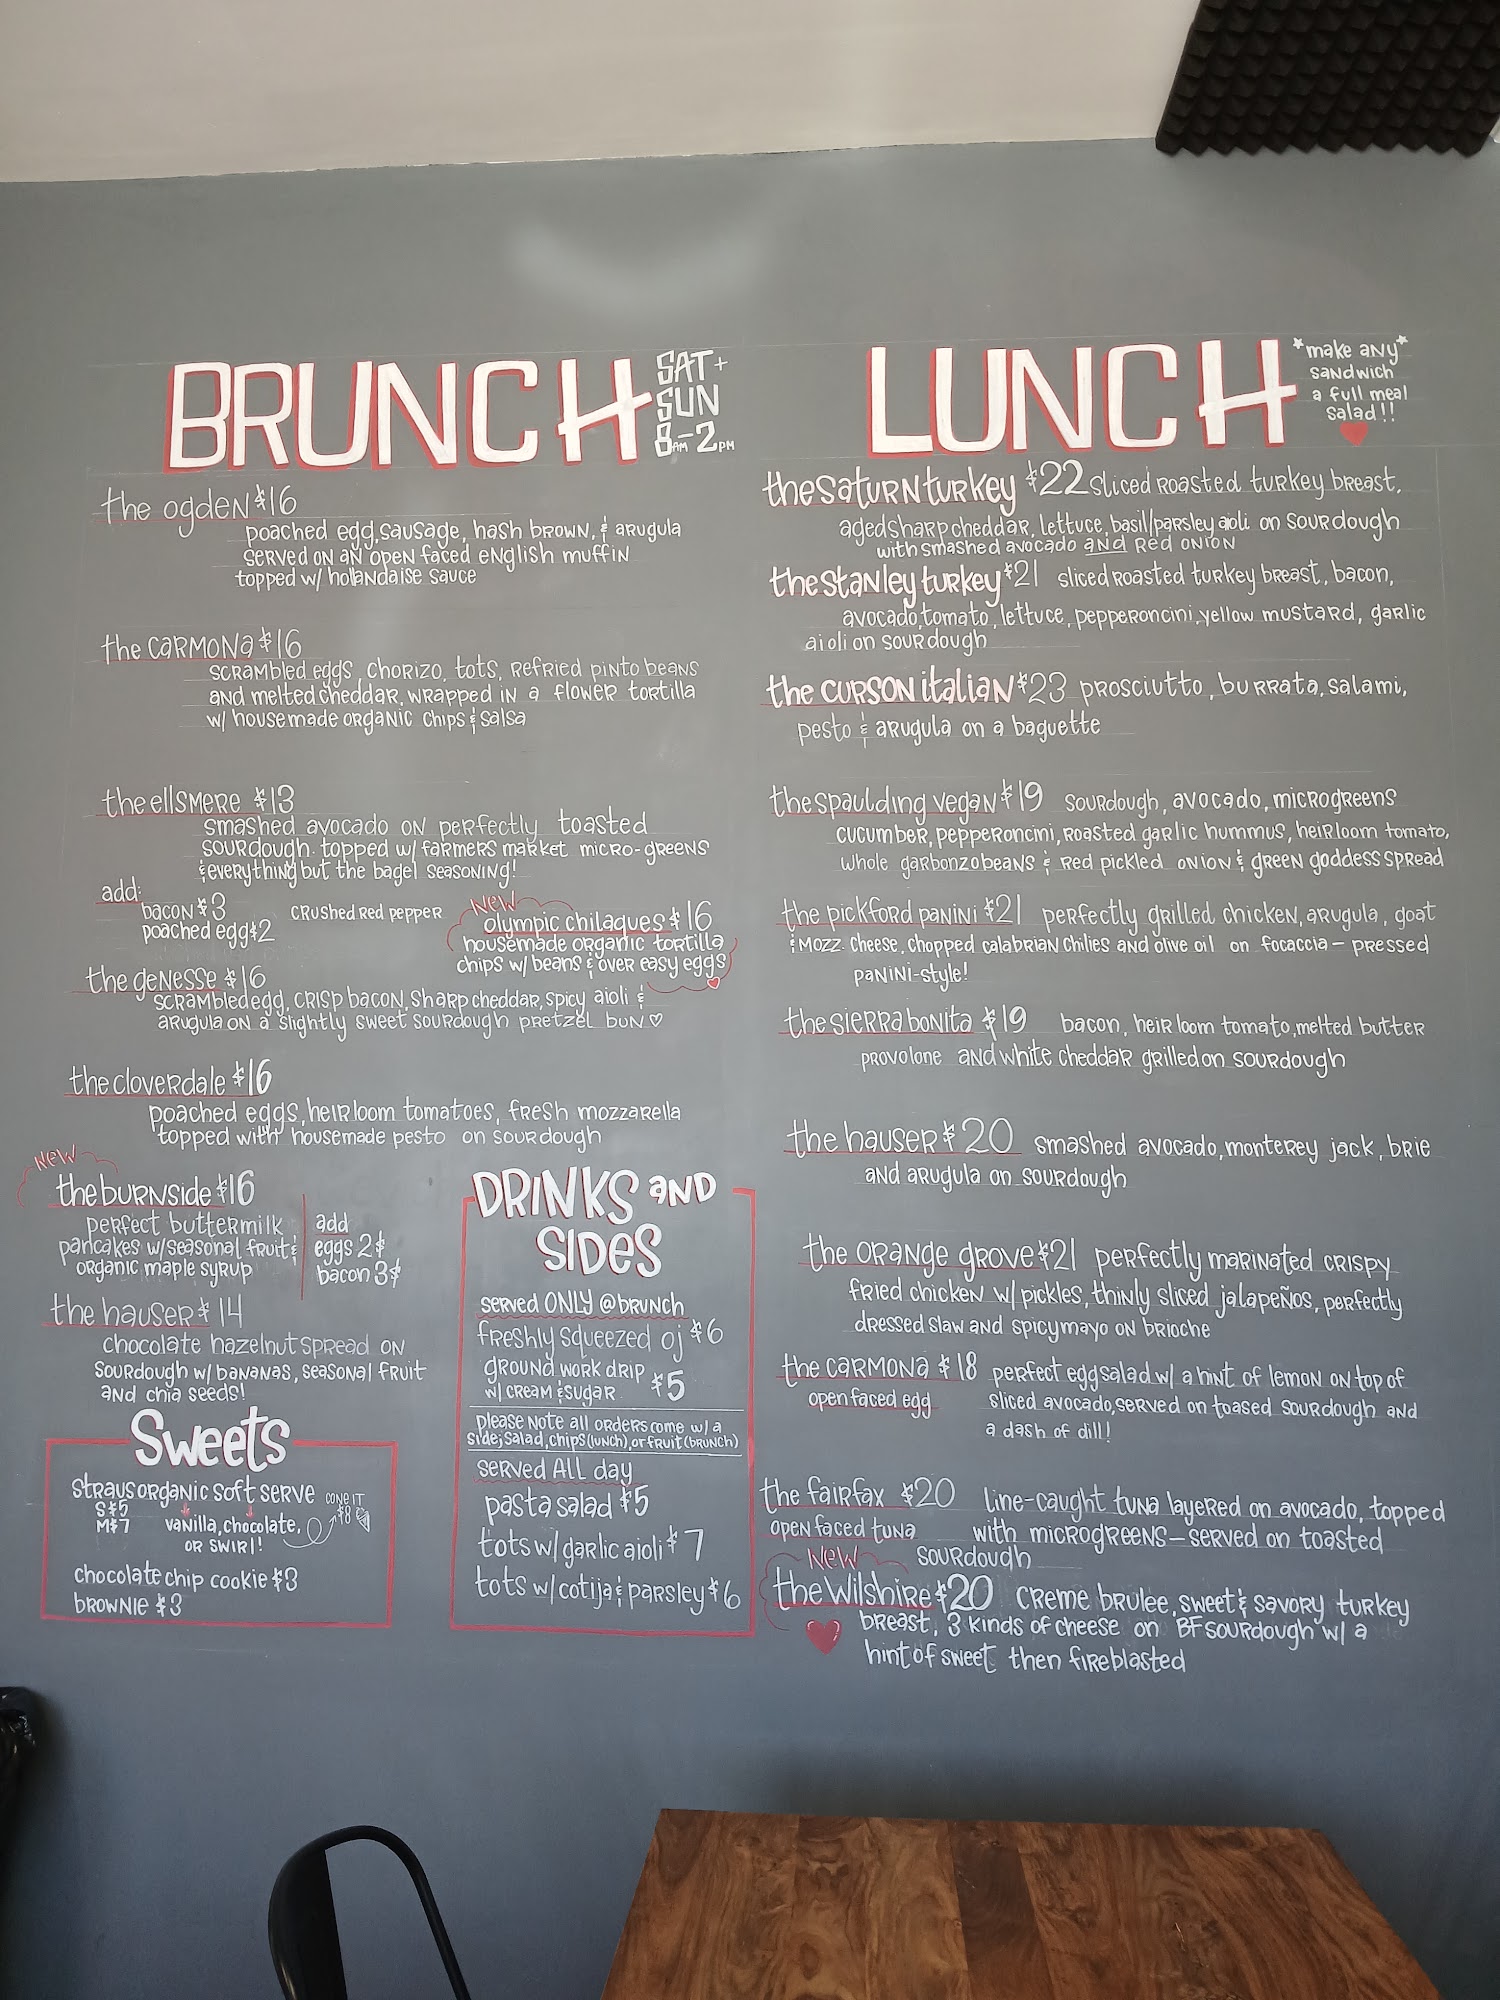 BRUNCH SAT+ SUN 8AM-2PM
the ogden $16
poached egg, sausage, hash brown, & arugula
served on an open faced english muffin
topped w/ holandaise sauce
the carmona $16
scrambled eggs, chorizo, tots, refried pinto beans
and melted cheddar, wrapped in a flower tortilla
w/ housemade organic chips & salsa
the ellsmere $13
smashed avocado on perfectly toasted
sourdough. topped w/ farmers market micro-greens
& everything but the bagel seasoning!
add:
bacon $3
poached egg $2
crushed red pepper
NEW
olympic chilaques $16
housemade organic tortilla
chips w/ beans & over easy eggs
the genesse $16
scrambled egg, crisp bacon, sharp cheddar, spicy aioli &
arugula on a slightly sweet sourdough pretzel bun ♡
the cloverdale $16
poached eggs, heirloom tomatoes, fresh mozzarella
topped with housemade pesto on sourdough
NEW
the burnside $16
perfect buttermilk
pancakes w/ seasonal fruit &
organic maple syrup
add
eggs 2$
bacon 3$
the hauser $14
chocolate hazelnut spread on
sourdough w/ bananas, seasonal fruit
and chia seeds!
Sweets
straus organic soft serve
S $5
M $7
vanilla, chocolate,
or swirl!
CONE IT
$8
chocolate chip cookie $3
brownie $3
DRINKS AND
SIDES
served ONLY @ brunch
freshly squeezed oj $6
ground work drip
w/ cream & sugar $5
please note all orders come w/ a
side; salad, chips (lunch), or fruit (brunch)
served ALL day
pasta salad $5
tots w/ garlic aioli $7
tots w/ cotija & parsley $6
LUNCH
*make any*
sandwich
a full meal
salad!!
the saturn turkey $22 sliced roasted turkey breast,
aged sharp cheddar, lettuce, basil/parsley aioli on sourdough
with smashed avocado and red onion
the stanley turkey $21 sliced roasted turkey breast, bacon,
avocado, tomato, lettuce, pepperoncini, yellow mustard, garlic
aioli on sourdough
the curson italian $23 prosciutto, burrata, salami,
pesto & arugula on a baguette
the spaulding vegan $19 sourdough, avocado, microgreens
cucumber, pepperoncini, roasted garlic hummus, heirloom tomato,
whole garbonzo beans & red pickled onion & green goddess spread
the pickford panini $21 perfectly grilled chicken, arugula, goat
& mozz. cheese, chopped calabrian chilies and olive oil on focaccia - pressed
panini-style!
the sierra bonita $19 bacon, heirloom tomato, melted butter
provolone and white cheddar grilled on sourdough
the hauser $20 smashed avocado, monterey jack, brie
and arugula on sourdough
the orange grove $21 perfectly marinated crispy
fried chicken w/ pickles, thinly sliced jalapeños, perfectly
dressed slaw and spicy mayo on brioche
the carmona $18 perfect egg salad w/ a hint of lemon on top of
open faced egg sliced avocado, served on toased sourdough and
a dash of dill!
the fairfax $20 line-caught tuna layered on avocado, topped
open faced tuna with microgreens - served on toasted
sourdough
NEW
the wilshire $20 creme brulee, sweet & savory turkey
breast, 3 kinds of cheese on BF sourdough w/ a
hint of sweet then fireblasted